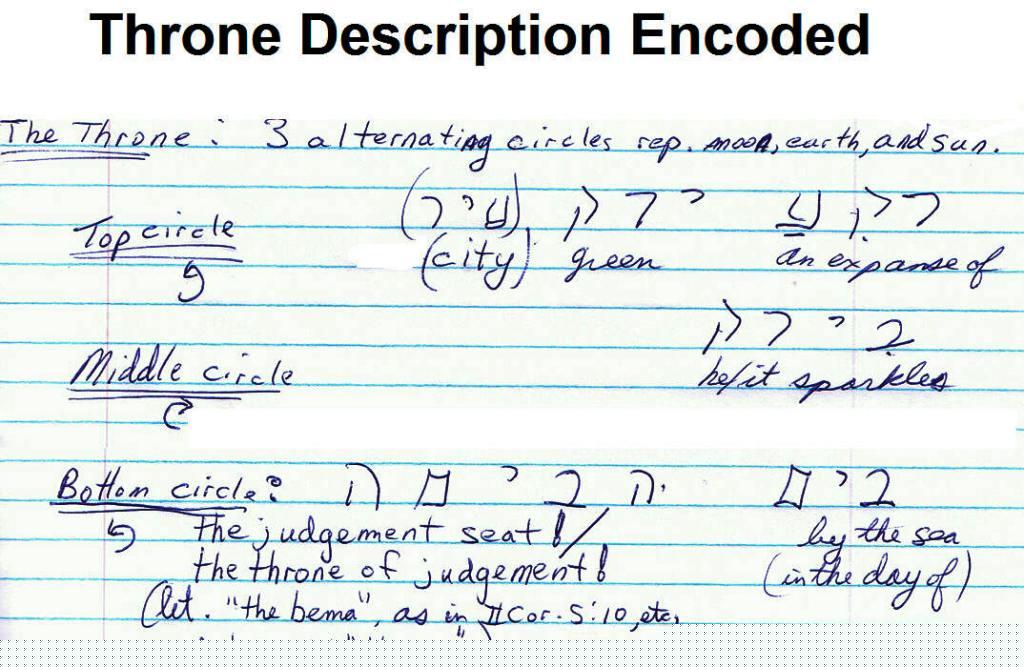 Throne Description Encoded
The Throne: 3 alternating circles rep. moon, earth, and sun.
Top circle רקע ירק (עיר)
(city) green an expanse of
בירק
Middle circle he/it sparkles
Bottom circle: בים הביםה
the judgement seat!/ by the sea
the throne of judgement! (in the day of)
(let. "the bema", as in II Cor. 5:10, etc.